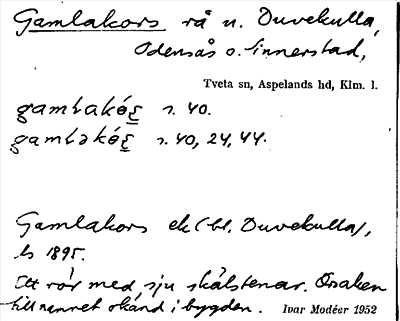 Gamlakors rå n. Duvekulla,
Odensås o. Sinnerstad,
Tveta sn, Aspelands hd, Klm. l.
gamlakós s. 40.
gamləkós s. 40, 24, 44.
Gamlakors ek (bl. Duvekulla),
ls 1895.
Ett rör med sju skålstenar. Orsaken
till namnet okänd i bygden. Ivar Modéer 1952